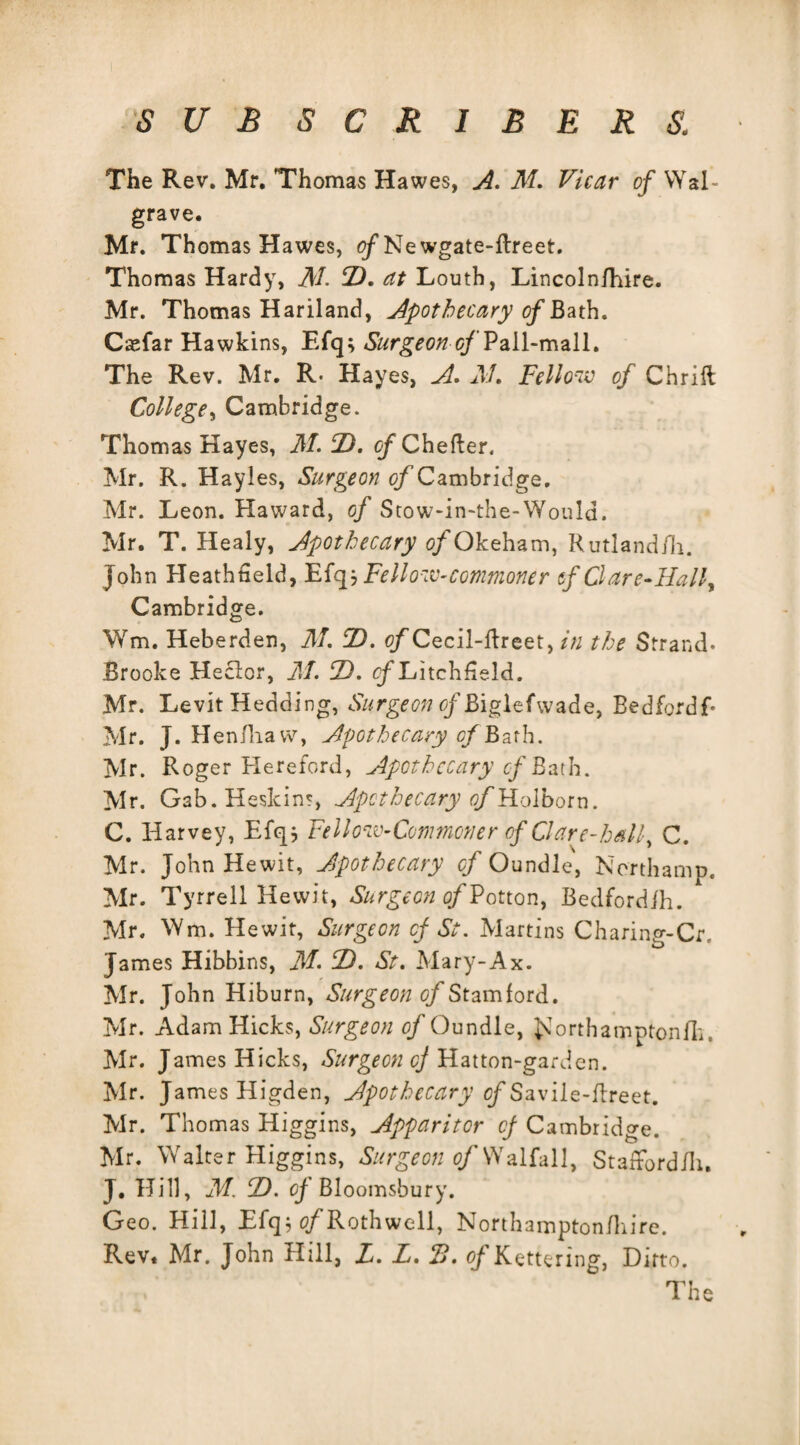 SUBSCRIBERS.
The Rev. Mr. Thomas Hawes, A. M. Vicar of Wal-
grave.
Mr. Thomas Hawes, of Newgate-ſtreet.
Thomas Hardy, M. D. at Louth, Lincolnſhire.
Mr. Thomas Hariland, Apothecary of Bath.
Cæſar Hawkins, Eſq; Surgeon of Pall-mall.
The Rev. Mr. R. Hayes, A. M. Fellow of Chriſt
College, Cambridge.
Thomas Hayes, M. D. of Cheſter.
Mr. R. Hayles, Surgeon of Cambridge.
Mr. Leon. Haward, of Stow-in-the-Would.
Mr. T. Healy, Apothecary of Okeham, Rutlandſh.
John Heathfield, Eſq; Fellow-commoner of Clare-Hall,
Cambridge.
Wm. Heberden, M. D. of Cecil-ſtreet, in the Strand.
Brooke Hector, M. D. of Litchfield.
Mr. Levit Hedding, Surgeon of Bigleſwade, Bedfordſ.
Mr. J. Henſhaw, Apothecary of Bath.
Mr. Roger Hereford, Apothecary of Bath.
Mr. Gab. Heskins, Apothecary of Holborn.
C. Harvey, Eſq; Fellow-Commoner of Clare-hall, C.
Mr. John Hewit, Apothecary of Oundle, Northamp.
Mr. Tyrrell Hewit, Surgeon of Potton, Bedfordſh.
Mr. Wm. Hewit, Surgeon of St. Martins Charing-Cr.
James Hibbins, M. D. St. Mary-Ax.
Mr. John Hiburn, Surgeon of Stamford.
Mr. Adam Hicks, Surgeon of Oundle, Northamptonſh.
Mr. James Hicks, Surgeon of Hatton-garden.
Mr. James Higden, Apothecary of Savile-ſtreet.
Mr. Thomas Higgins, Apparitor of Cambridge.
Mr. Walter Higgins, Surgeon of Walſall, Staffordſh.
J. Hill, M. D. of Bloomsbury.
Geo. Hill, Eſq; of Rothwell, Northamptonſhire.
Rev. Mr. John Hill, L. L. B. of Kettering, Ditto.
The